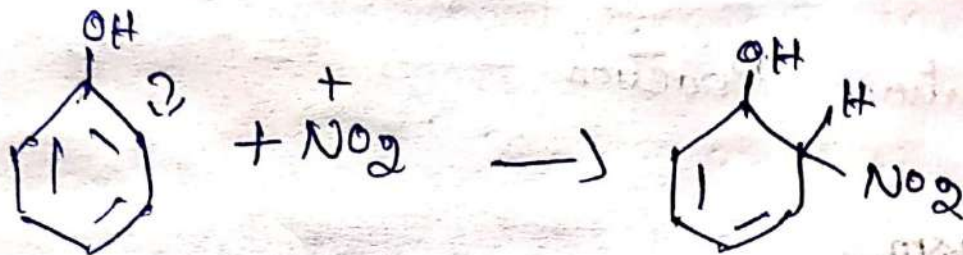 OH
+ NO2+ ⟶
OH
H
NO2